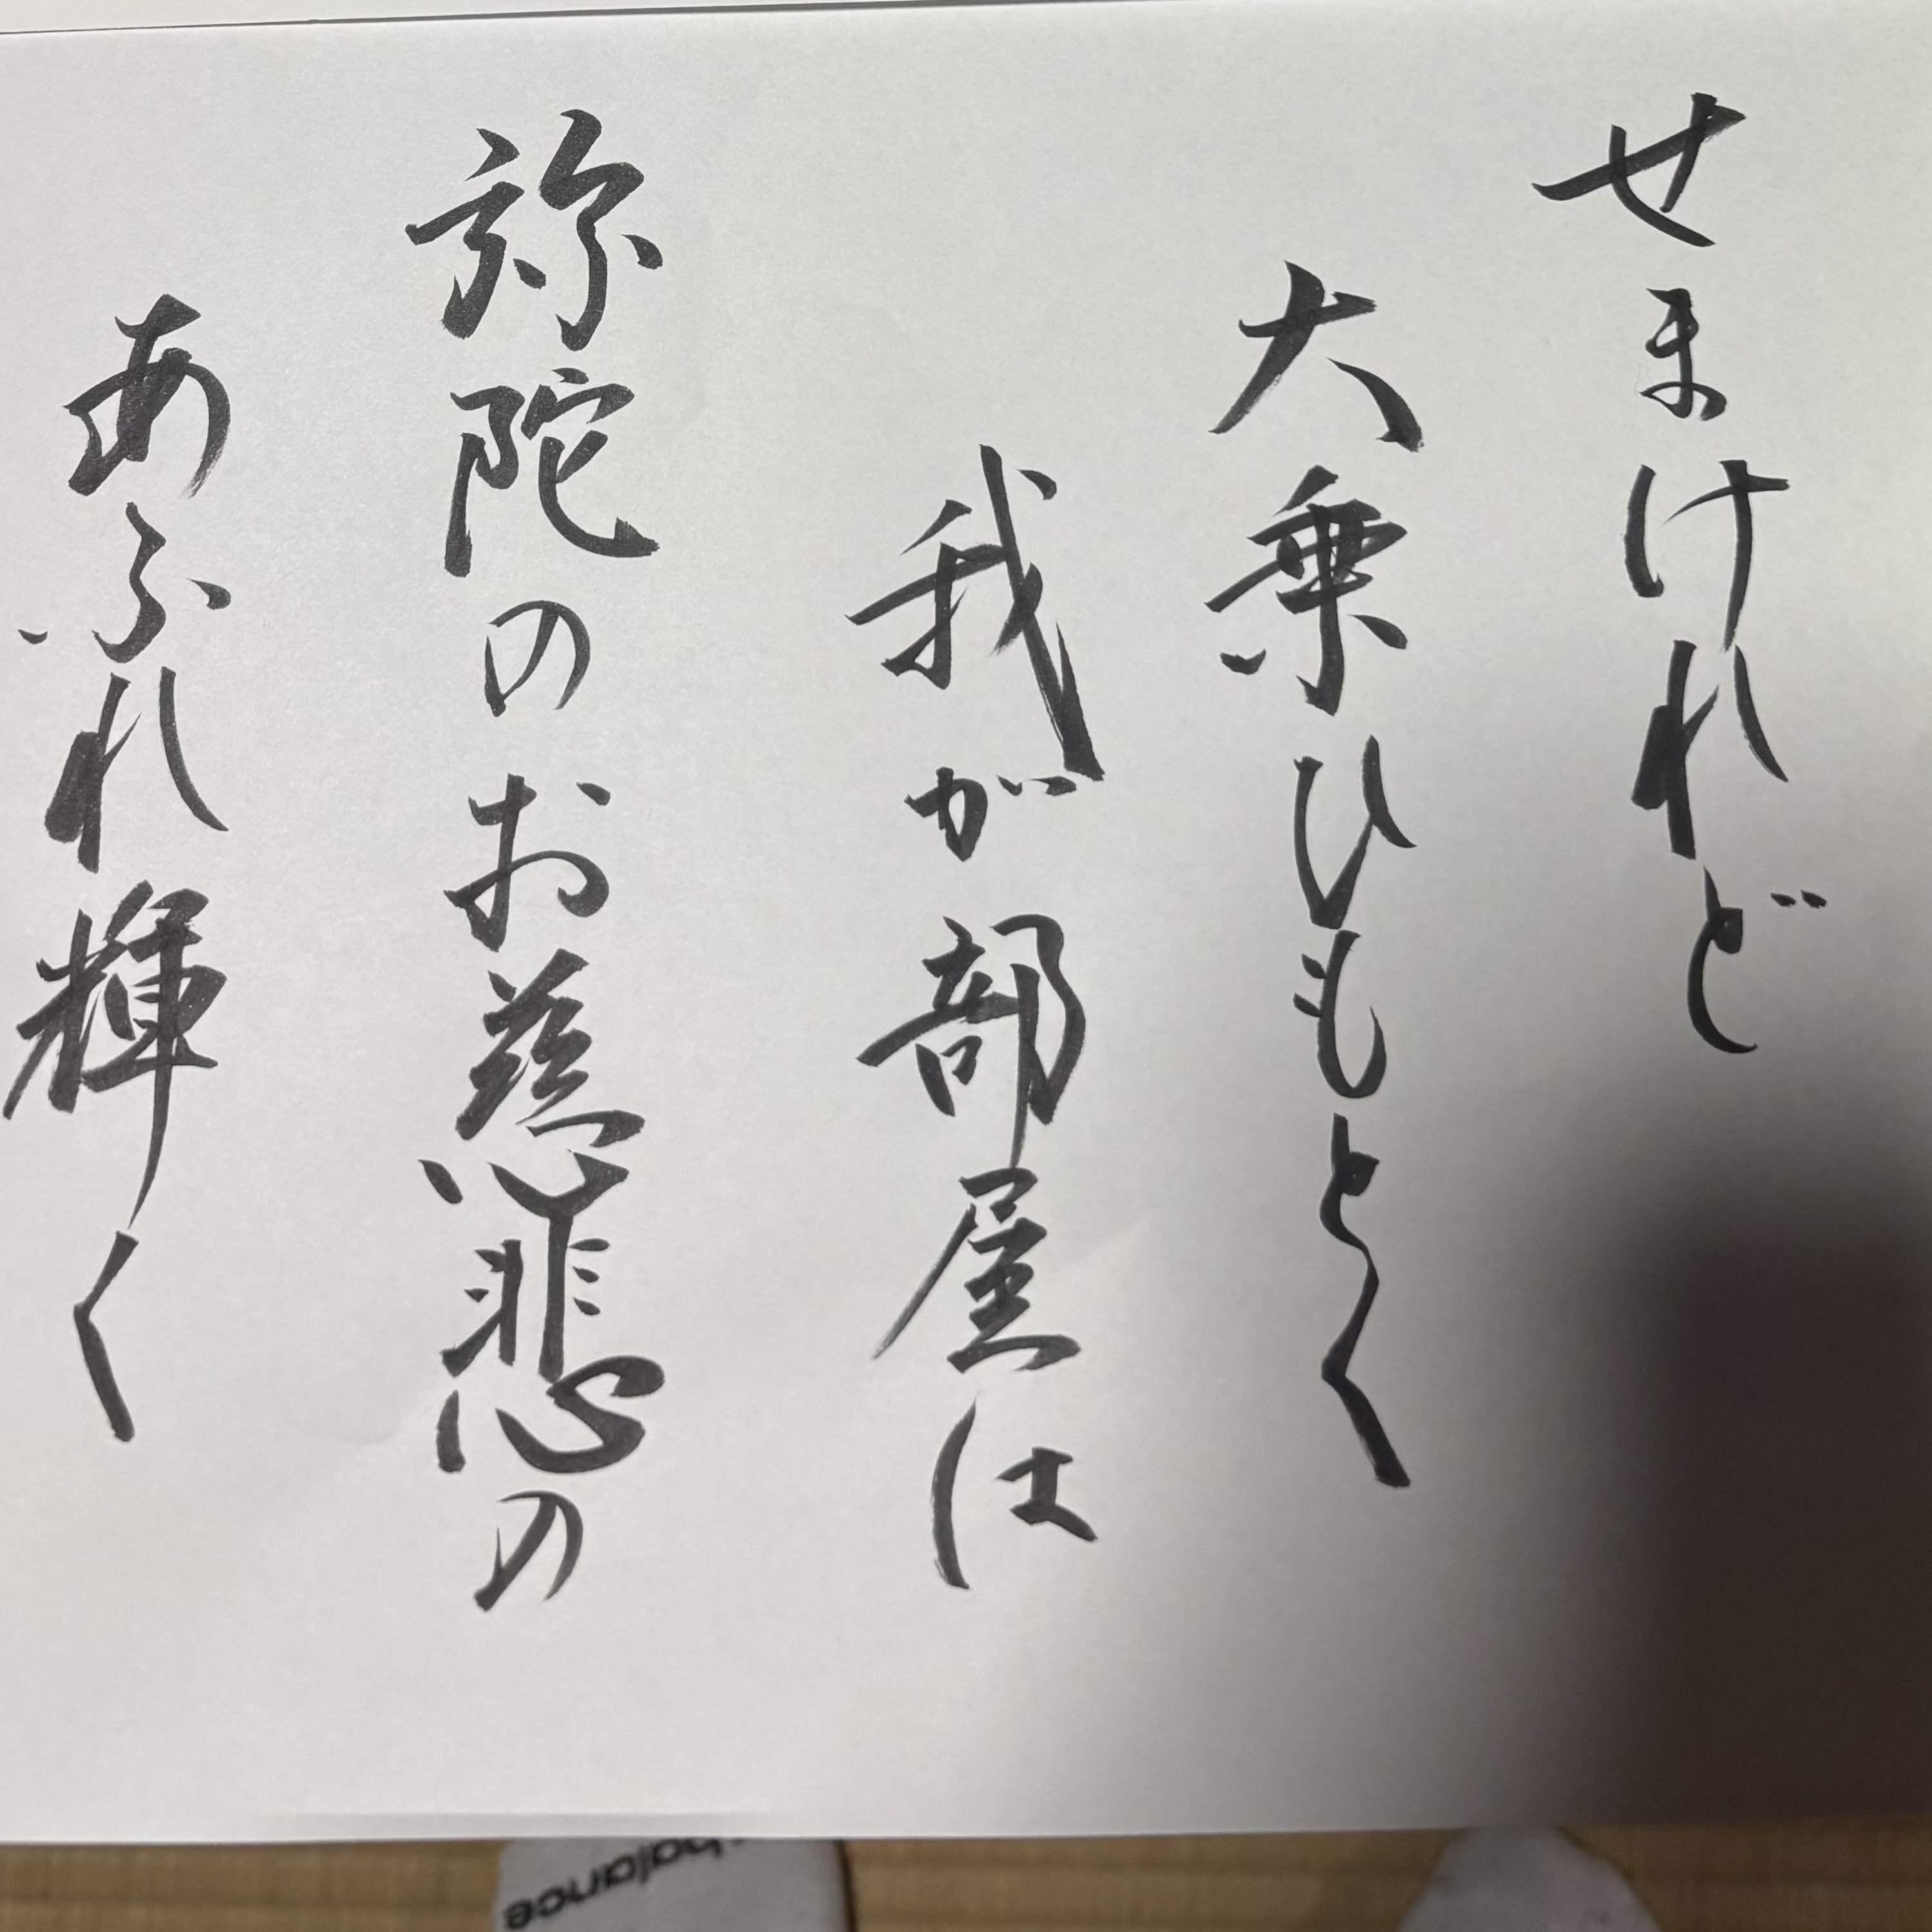 せまけれど
大乗ひもとく
我が部屋は
弥陀のお慈悲の
あふれ輝く
balance